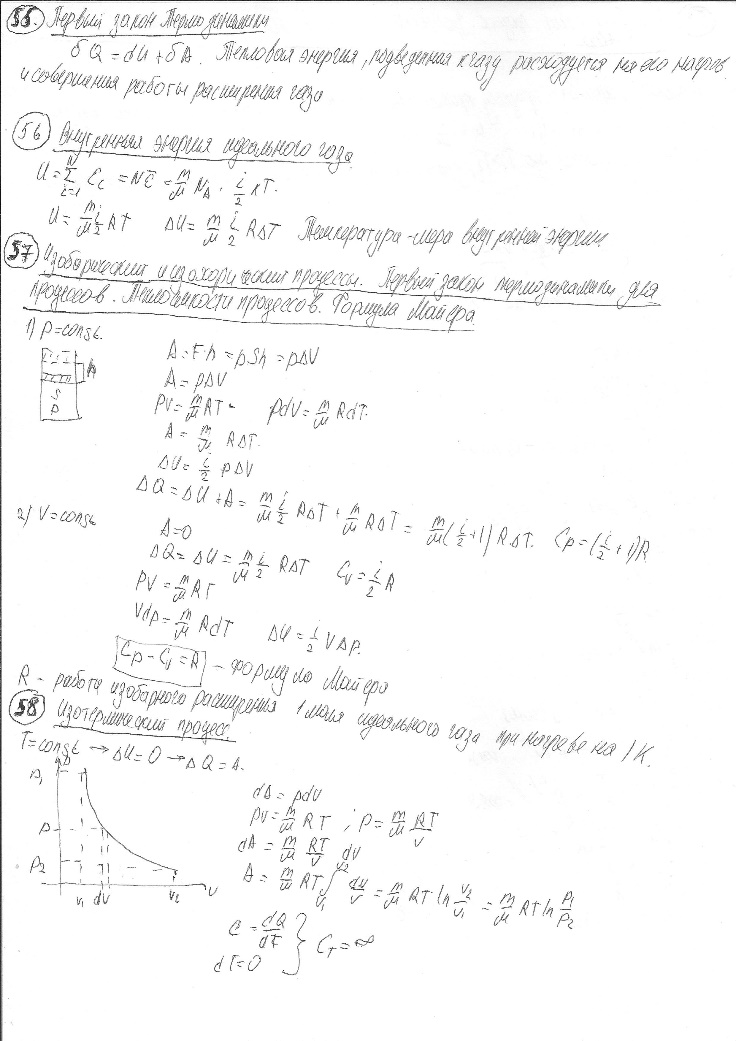 55. Первый закон термодинамики
δQ = dU + δA. Тепловая энергия, подведенная к газу расходуется на его нагрев
и совершения работы расширения газа
56 Внутренняя энергия идеального газа
U = Σ_{i=1}^{N} ε_i = N ε̄ = m/μ N_A · i/2 кT.
U = m/μ i/2 RT ΔU = m/μ i/2 RΔT Температура - мера внутренней энергии.
57 Изобарический и изохорический процессы. Первый закон термодинамики для
процессов. Теплоемкости процессов. Формула Майера
1) P = const.
h
S
P
A = Fh = pSh = pΔV
A = pΔV
PV = m/μ RT - pdV = m/μ RdT.
A = m/μ RΔT.
ΔU = i/2 pΔV
ΔQ = ΔU + A = m/μ i/2 RΔT + m/μ RΔT = m/μ (i/2 + 1) RΔT. Cp = (i/2 + 1)R
2) V = const
A = 0
ΔQ = ΔU = m/μ i/2 RΔT C_V = i/2 R
PV = m/μ RT
Vdp = m/μ RdT ΔU = i/2 VΔP.
Cp - C_V = R - формула Майера
R - работа изобарного расширения 1 моля идеального газа при нагреве на 1K.
58 Изотермический процесс.
T = const → ΔU = 0 → ΔQ = A.
P
P1
P
P2
V1 dV V2 V
dA = pdV
PV = m/μ RT ; P = m/μ RT/V
dA = m/μ RT/V dV
A = m/μ RT ∫_{V1}^{V2} dV/V = m/μ RT ln V2/V1 = m/μ RT ln P1/P2
C = dQ/dT
dT = 0 } C_T = ∞